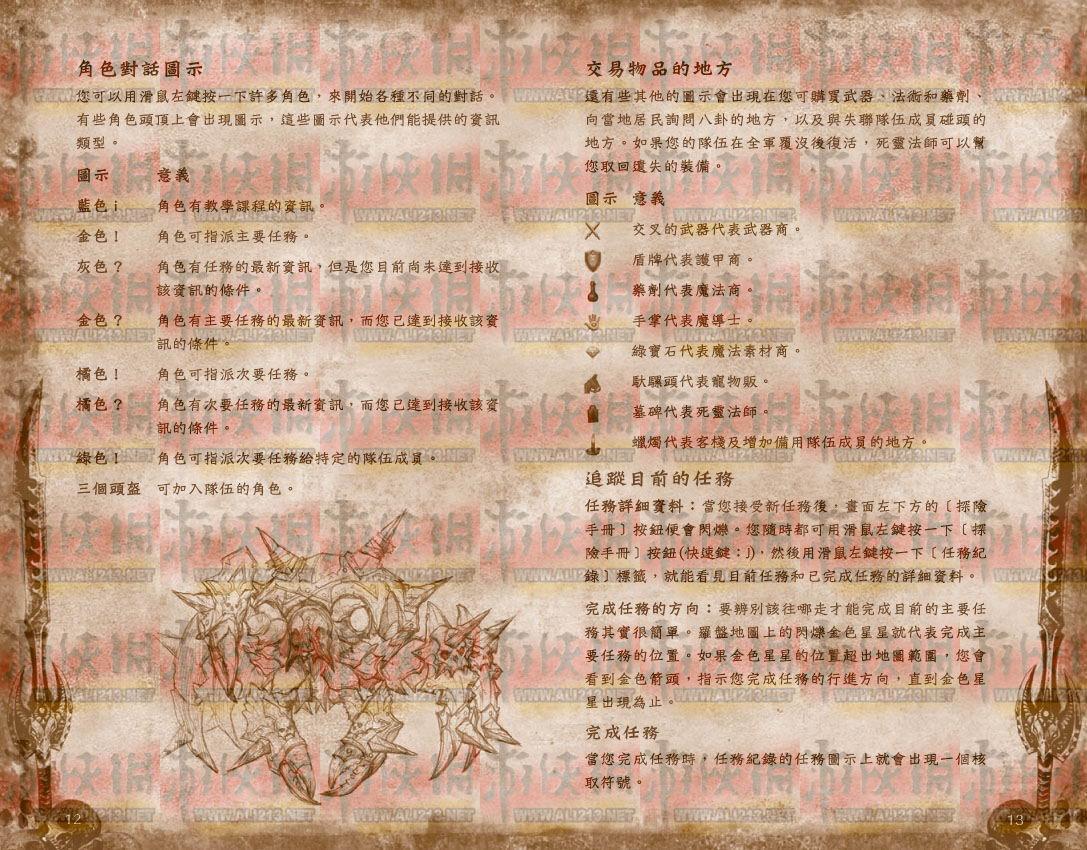 角色對話圖示
您可以用滑鼠左鍵按一下許多角色，來開始各種不同的對話。
有些角色頭頂上會出現圖示，這些圖示代表他們能提供的資訊
類型。
圖示 意義
藍色 i 角色有教學課程的資訊。
金色！ 角色可指派主要任務。
灰色？ 角色有任務的最新資訊，但是您目前尚未達到接收
該資訊的條件。
金色？ 角色有主要任務的最新資訊，而您已達到接收該資
訊的條件。
橘色！ 角色可指派次要任務。
橘色？ 角色有次要任務的最新資訊，而您已達到接收該資
訊的條件。
綠色！ 角色可指派次要任務給特定的隊伍成員。
三個頭盔 可加入隊伍的角色。
12
交易物品的地方
還有些其他的圖示會出現在您可購買武器、法術和藥劑、
向當地居民詢問八卦的地方，以及與失聯隊伍成員碰頭的
地方。如果您的隊伍在全軍覆沒後復活，死靈法師可以幫
您取回遺失的裝備。
圖示 意義
交叉的武器代表武器商。
盾牌代表護甲商。
藥劑代表魔法商。
手掌代表魔導士。
綠寶石代表魔法素材商。
馱騾頭代表寵物販。
墓碑代表死靈法師。
蠟燭代表客棧及增加備用隊伍成員的地方。
追蹤目前的任務
任務詳細資料：當您接受新任務後，畫面左下方的〔探險
手冊〕按鈕便會閃爍。您隨時都可用滑鼠左鍵按一下〔探
險手冊〕按鈕(快速鍵：J)，然後用滑鼠左鍵按一下〔任務紀
錄〕標籤，就能看見目前任務和已完成任務的詳細資料。
完成任務的方向：要辨別該往哪走才能完成目前的主要任
務其實很簡單。羅盤地圖上的閃爍金色星星就代表完成主
要任務的位置。如果金色星星的位置超出地圖範圍，您會
看到金色箭頭，指示您完成任務的行進方向，直到金色星
星出現為止。
完成任務
當您完成任務時，任務紀錄的任務圖示上就會出現一個核
取符號。
13
游俠網
WWW.ALI213.NET